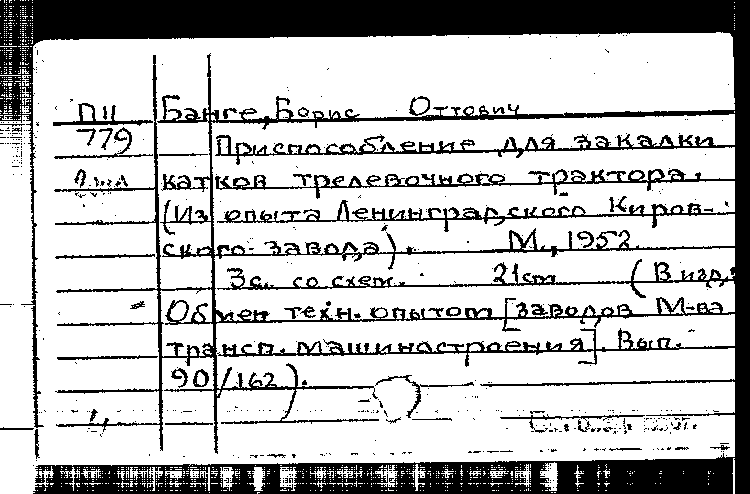 ПII Банге, Борис Оттович
779 Приспособление для закалки
катков трелевочного трактора.
(Из опыта Ленинградского Киров-
ского завода). М., 1952.
3с. со схем. 21см (В изд.:
Обмен техн. опытом [заводов М-ва
трансп. машиностроения]. Вып.
90/162).
4